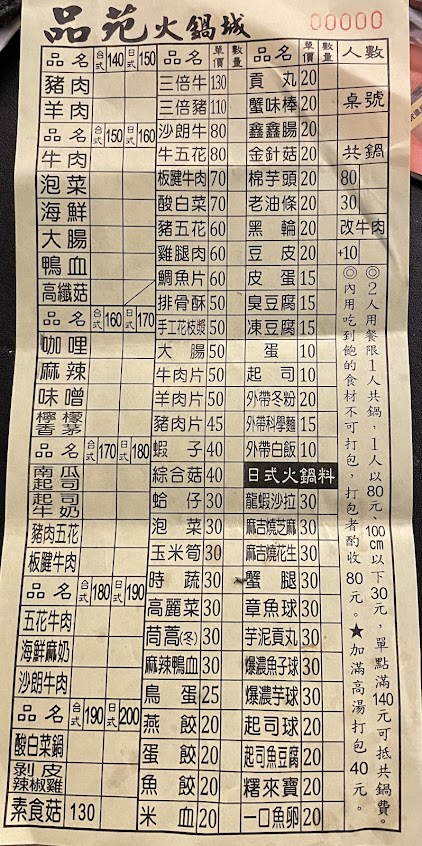 品苑火鍋城
00000
品名 台式 140 日式 150
豬肉
羊肉
品名 台式 150 日式 160
牛肉
泡菜
海鮮
大腸
鴨血
高纖菇
品名 台式 160 日式 170
咖哩
麻辣
味噌
檸檬香茅
品名 台式 170 日式 180
南瓜起司
起司牛奶
豬肉五花
板腱牛肉
品名 台式 180 日式 190
五花牛肉
海鮮麻奶
沙朗牛肉
品名 台式 190 日式 200
酸白菜鍋
剝皮辣椒雞
素食菇 130
品名 單價 數量
三倍牛 130
三倍豬 110
沙朗牛 80
牛五花 80
板腱牛肉 70
酸白菜 70
豬五花 60
雞腿肉 60
鯛魚片 60
排骨酥 50
手工花枝漿 50
大腸 50
牛肉片 50
羊肉片 50
豬肉片 45
蝦子 40
綜合菇 40
蛤仔 30
泡菜 30
玉米筍 30
時蔬 30
高麗菜 30
茼蒿(冬) 30
麻辣鴨血 30
鳥蛋 25
燕餃 20
蛋餃 20
魚餃 20
米血 20
品名 單價 數量
貢丸 20
蟹味棒 20
鑫鑫腸 20
金針菇 20
棉芋頭 20
老油條 20
黑輪 20
豆皮 20
皮蛋 15
臭豆腐 15
凍豆腐 15
蛋 10
起司 10
外帶冬粉 20
外帶科學麵 15
外帶白飯 10
日式火鍋料
龍蝦沙拉 30
麻吉燒芝麻 30
麻吉燒花生 30
蟹腿 30
章魚球 30
芋泥貢丸 30
爆濃魚子球 30
爆濃芋球 30
起司球 20
起司魚豆腐 20
糬來寶 20
一口魚卵 20
人數
桌號
共鍋
80
30
改牛肉
+10
◎2人用餐限1人共鍋，1人以80元、100cm以下30元，單點滿140元可抵共鍋費。
◎內用吃到飽的食材不可打包，打包者酌收80元。★加滿高湯打包40元。